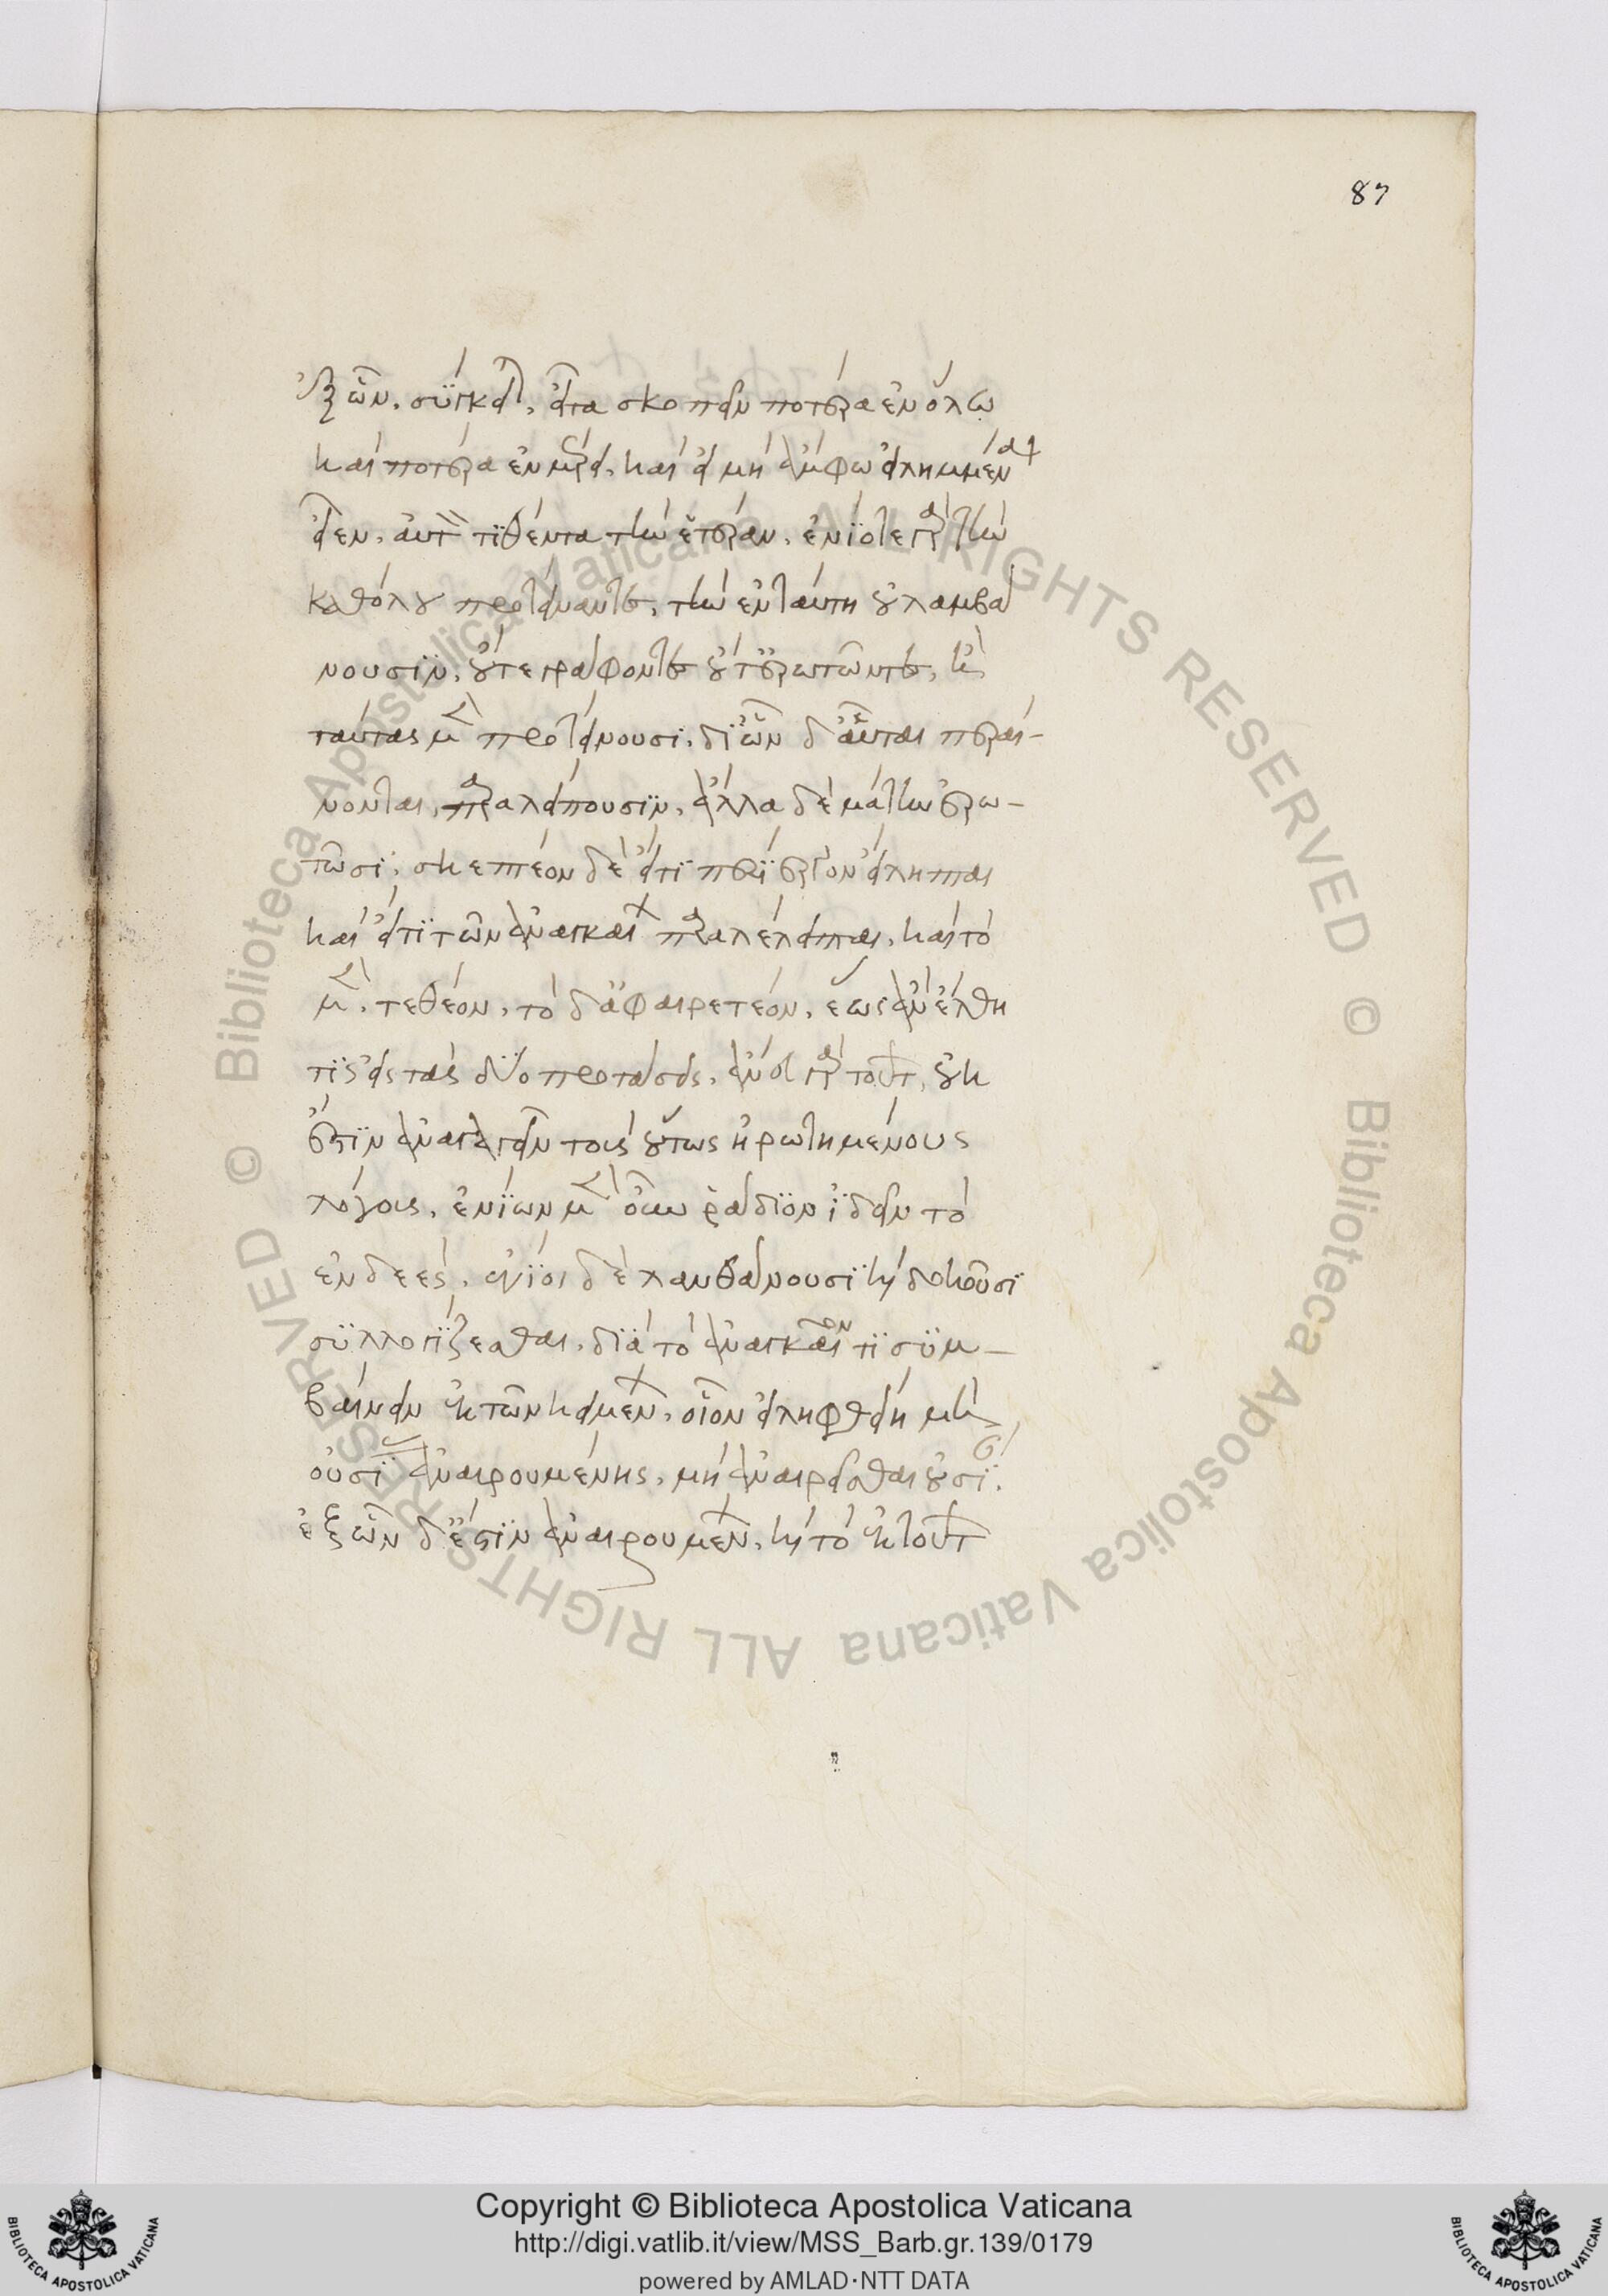 87
ἐξ ὧν σύγκειται, εἶτα σκοπεῖν πότερα ἐν ὅλω
καὶ πότερα ἐν μέρει, καὶ εἰ μὴ ἄμφω εἰλημμέναι
εἶεν, αὐτὸν τιθέντα τὴν ἑτέραν. ἐνίοτε γὰρ τὴν
καθόλου προτείναντες, τὴν ἐν ταύτη οὐ λαμβά
νουσιν, οὔτε γράφοντες οὔτ' ἐρωτῶντες, ἢ
ταύτας μὲν προτείνουσι, δι' ὧν δ' αὗται περαί-
νονται, παραλείπουσιν, ἄλλα δὲ μάτην ἐρω-
τῶσι, σκεπτέον δὲ εἴ τι περίεργον εἴληπται
καὶ εἴ τι τῶν ἀναγκαίων παραλέλειπται, καὶ τὸ
μὲν τεθέον, τὸ δ' ἀφαιρετέον, ἕως ἂν ἔλθη
τις εἰς τὰς δύο προτάσεις, ἄνευ γὰρ τούτων, οὐκ
ἔστιν ἀναγαγεῖν τοὺς οὕτως ἠρωτημένους
λόγους, ἐνίων μὲν οὖν ῥάδιον ἰδεῖν τὸ
ἐνδεές, ἔνιοι δὲ λανθάνουσι καὶ δοκοῦσι
συλλογίζεσθαι, διὰ τὸ ἀναγκαῖόν τι συμ-
βαίνειν ἐκ τῶν κειμένων, οἷον εἰ ληφθείη μὴ
οὐσίας ἀναιρουμένης, μὴ ἀναιρεῖσθαι οὐσίαν.
ἐξ ὧν δ' ἐστὶν ἀναιρουμένων, καὶ τὸ ἐκ τούτων
Copyright © Biblioteca Apostolica Vaticana
http://digi.vatlib.it/view/MSS_Barb.gr.139/0179
powered by AMLAD·NTT DATA
© Biblioteca Apostolica Vaticana ALL RIGHTS RESERVED © Biblioteca Apostolica Vaticana ALL RIGHTS RESERVED
BIBLIOTECA APOSTOLICA VATICANA
BIBLIOTECA APOSTOLICA VATICANA